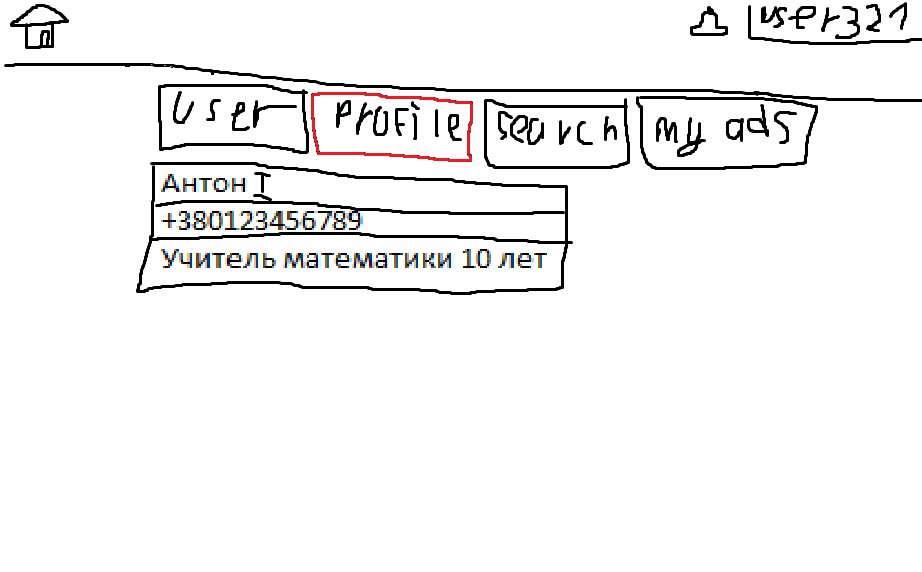 user321
user profile search my ads
Антон Т
+380123456789
Учитель математики 10 лет